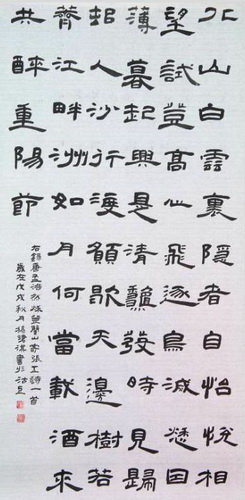 北山白雲裏隱者自怡悅相
望試登高心飛逐鳥滅愁因
薄暮起興是清龝發時見歸
邨人沙行渡頭歇天邊樹若
薺江畔洲如月何當載酒來
共醉重陽節
右錄唐孟浩然秋登蘭山寄張五詩一首
歲在戊戌秋月楊書於沽上